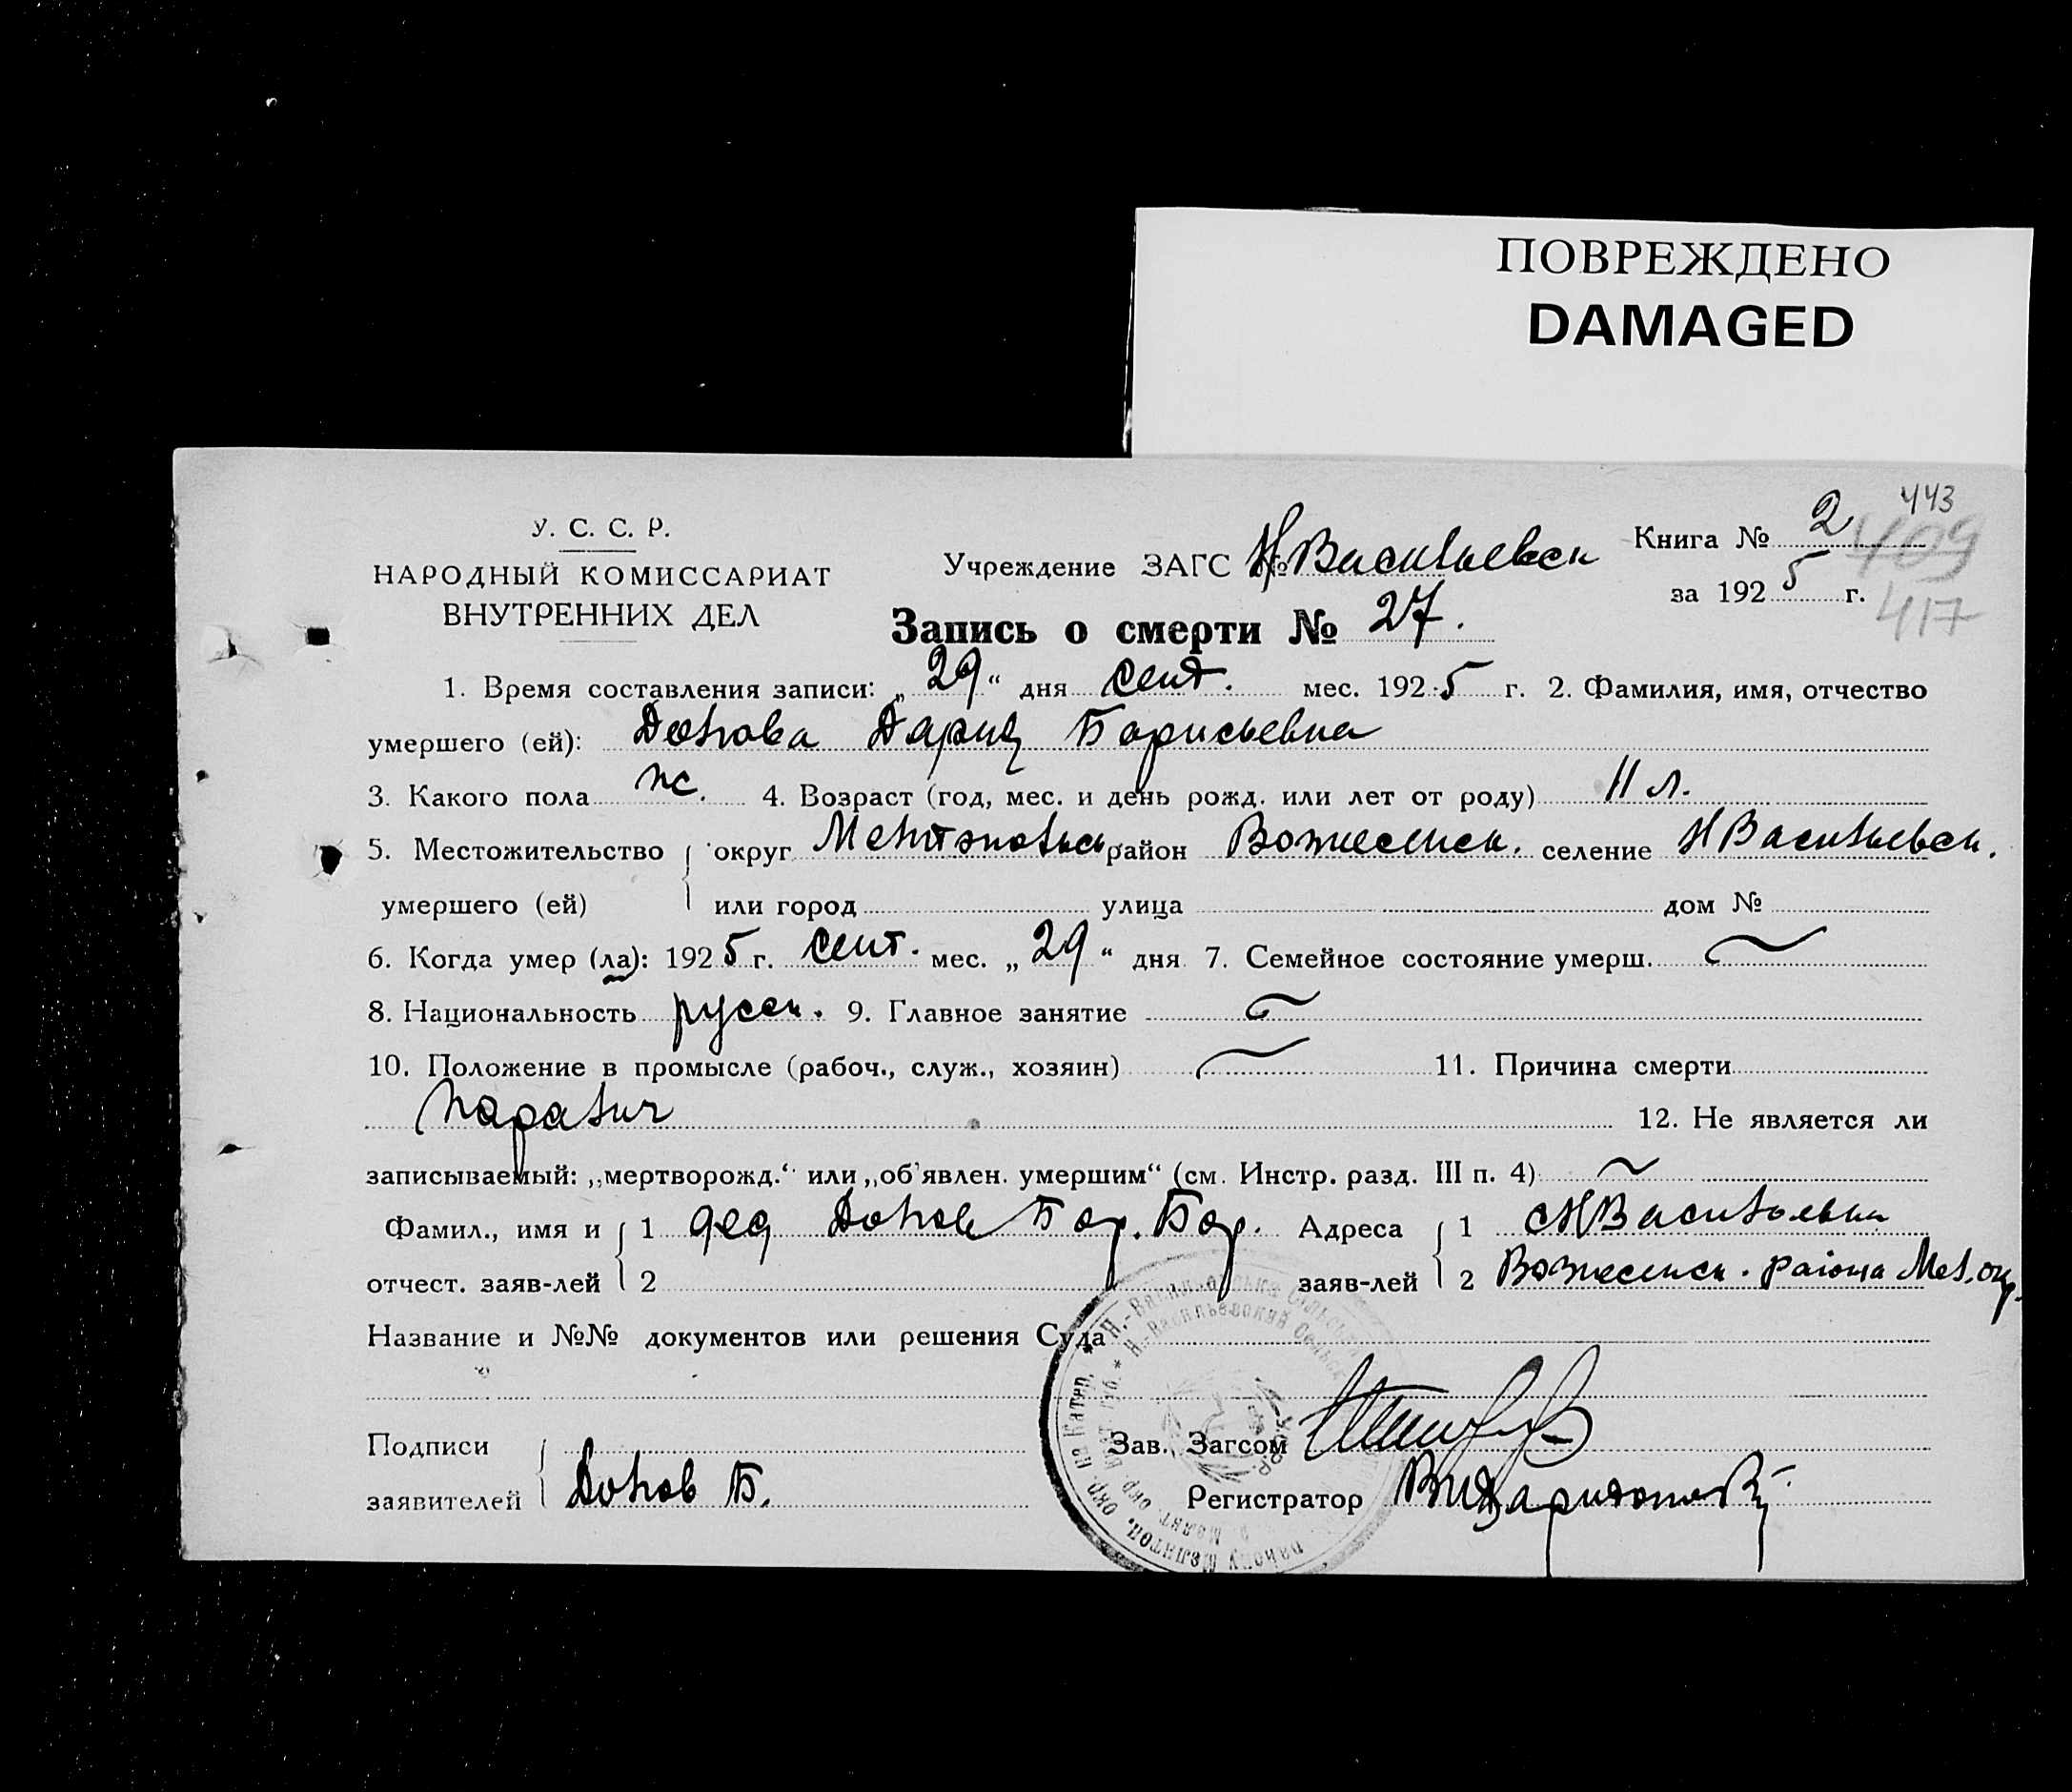 ПОВРЕЖДЕНО
DAMAGED
443
У. С. С. Р.
НАРОДНЫЙ КОМИССАРИАТ
ВНУТРЕННИХ ДЕЛ
Учреждение ЗАГС № Н Васильевск
Книга № 2
409
за 1925 г.
417
Запись о смерти № 27.
1. Время составления записи: „29“ дня сент. мес. 1925 г. 2. Фамилия, имя, отчество
умершего (ей): Дария Борисьевна
3. Какого пола ж. 4. Возраст (год, мес. и день рожд. или лет от роду) 11 л.
5. Местожительство округ Мелитопольск район Вознесенск. селение Н Васильевск.
умершего (ей) или город улица дом №
6. Когда умер (ла): 1925 г. сент. мес. „29“ дня 7. Семейное состояние умерш. ~
8. Национальность русск. 9. Главное занятие ~
10. Положение в промысле (рабоч., служ., хозяин) ~ 11. Причина смерти
паралич 12. Не является ли
записываемый: „мертворожд.“ или „об'явлен. умершим“ (см. Инстр. разд. III п. 4) ~
Фамил., имя и 1 дед Бор. Бор. Адреса 1 с Н Васильевка
отчест. заяв-лей 2 заяв-лей 2 Вознесенск. района Мел. окр.
Название и №№ документов или решения Суда
Подписи Зав. Загсом
заявителей Б. Регистратор